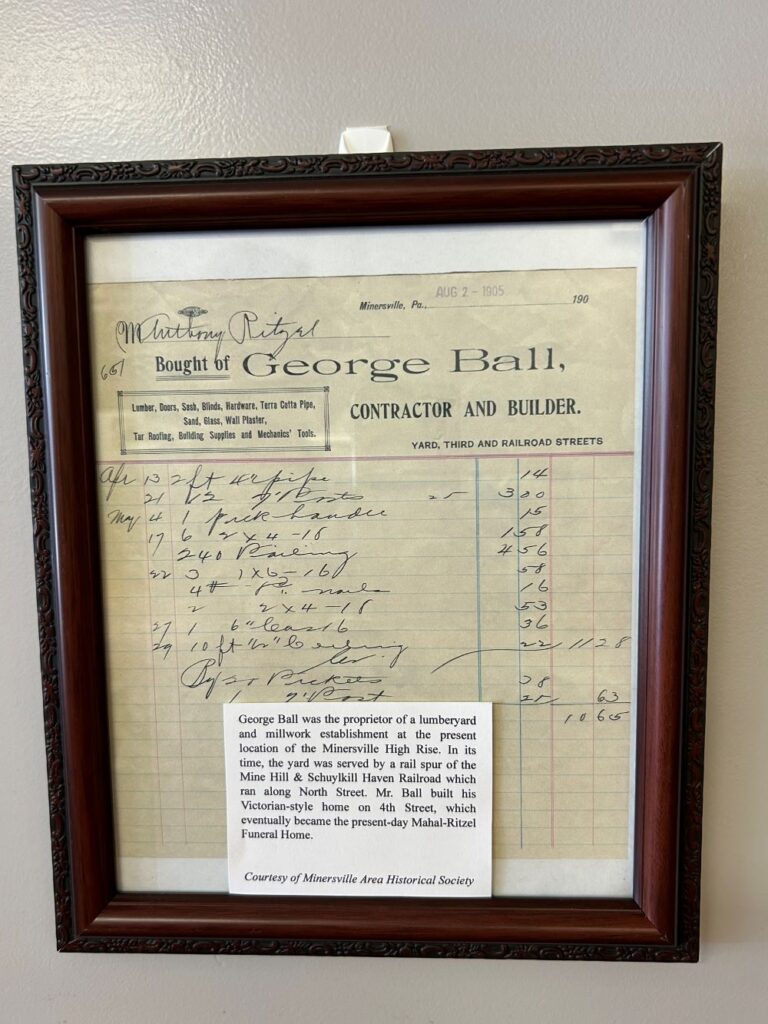 AUG 2 - 1905
Minersville, Pa., 190
M Anthony Ritzel
Bought of George Ball,
Lumber, Doors, Sash, Blinds, Hardware, Terra Cotta Pipe,
Sand, Glass, Wall Plaster,
Tar Roofing, Building Supplies and Mechanics' Tools.
CONTRACTOR AND BUILDER.
YARD, THIRD AND RAILROAD STREETS
Apr 13 2 ft 4" pipe 14
21 12 9' Posts 25 3 00
May 4 1 pick handle 15
17 6 2 x 4 - 18 1 58
240 Railing 4 56
22 3 1 x 6 - 16 58
4# 8d nails 16
2 2 x 4 - 18 53
27 1 6" 16 36
29 10 ft 22 11 28
Cr.
By 25 Pickets 38
1 9' Post 25 63
10 65
George Ball was the proprietor of a lumberyard
and millwork establishment at the present
location of the Minersville High Rise. In its
time, the yard was served by a rail spur of the
Mine Hill & Schuylkill Haven Railroad which
ran along North Street. Mr. Ball built his
Victorian-style home on 4th Street, which
eventually became the present-day Mahal-Ritzel
Funeral Home.
Courtesy of Minersville Area Historical Society